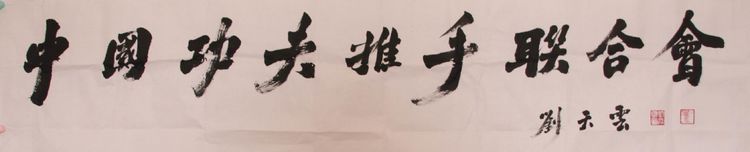 中國功夫推手聯合會
劉天雲